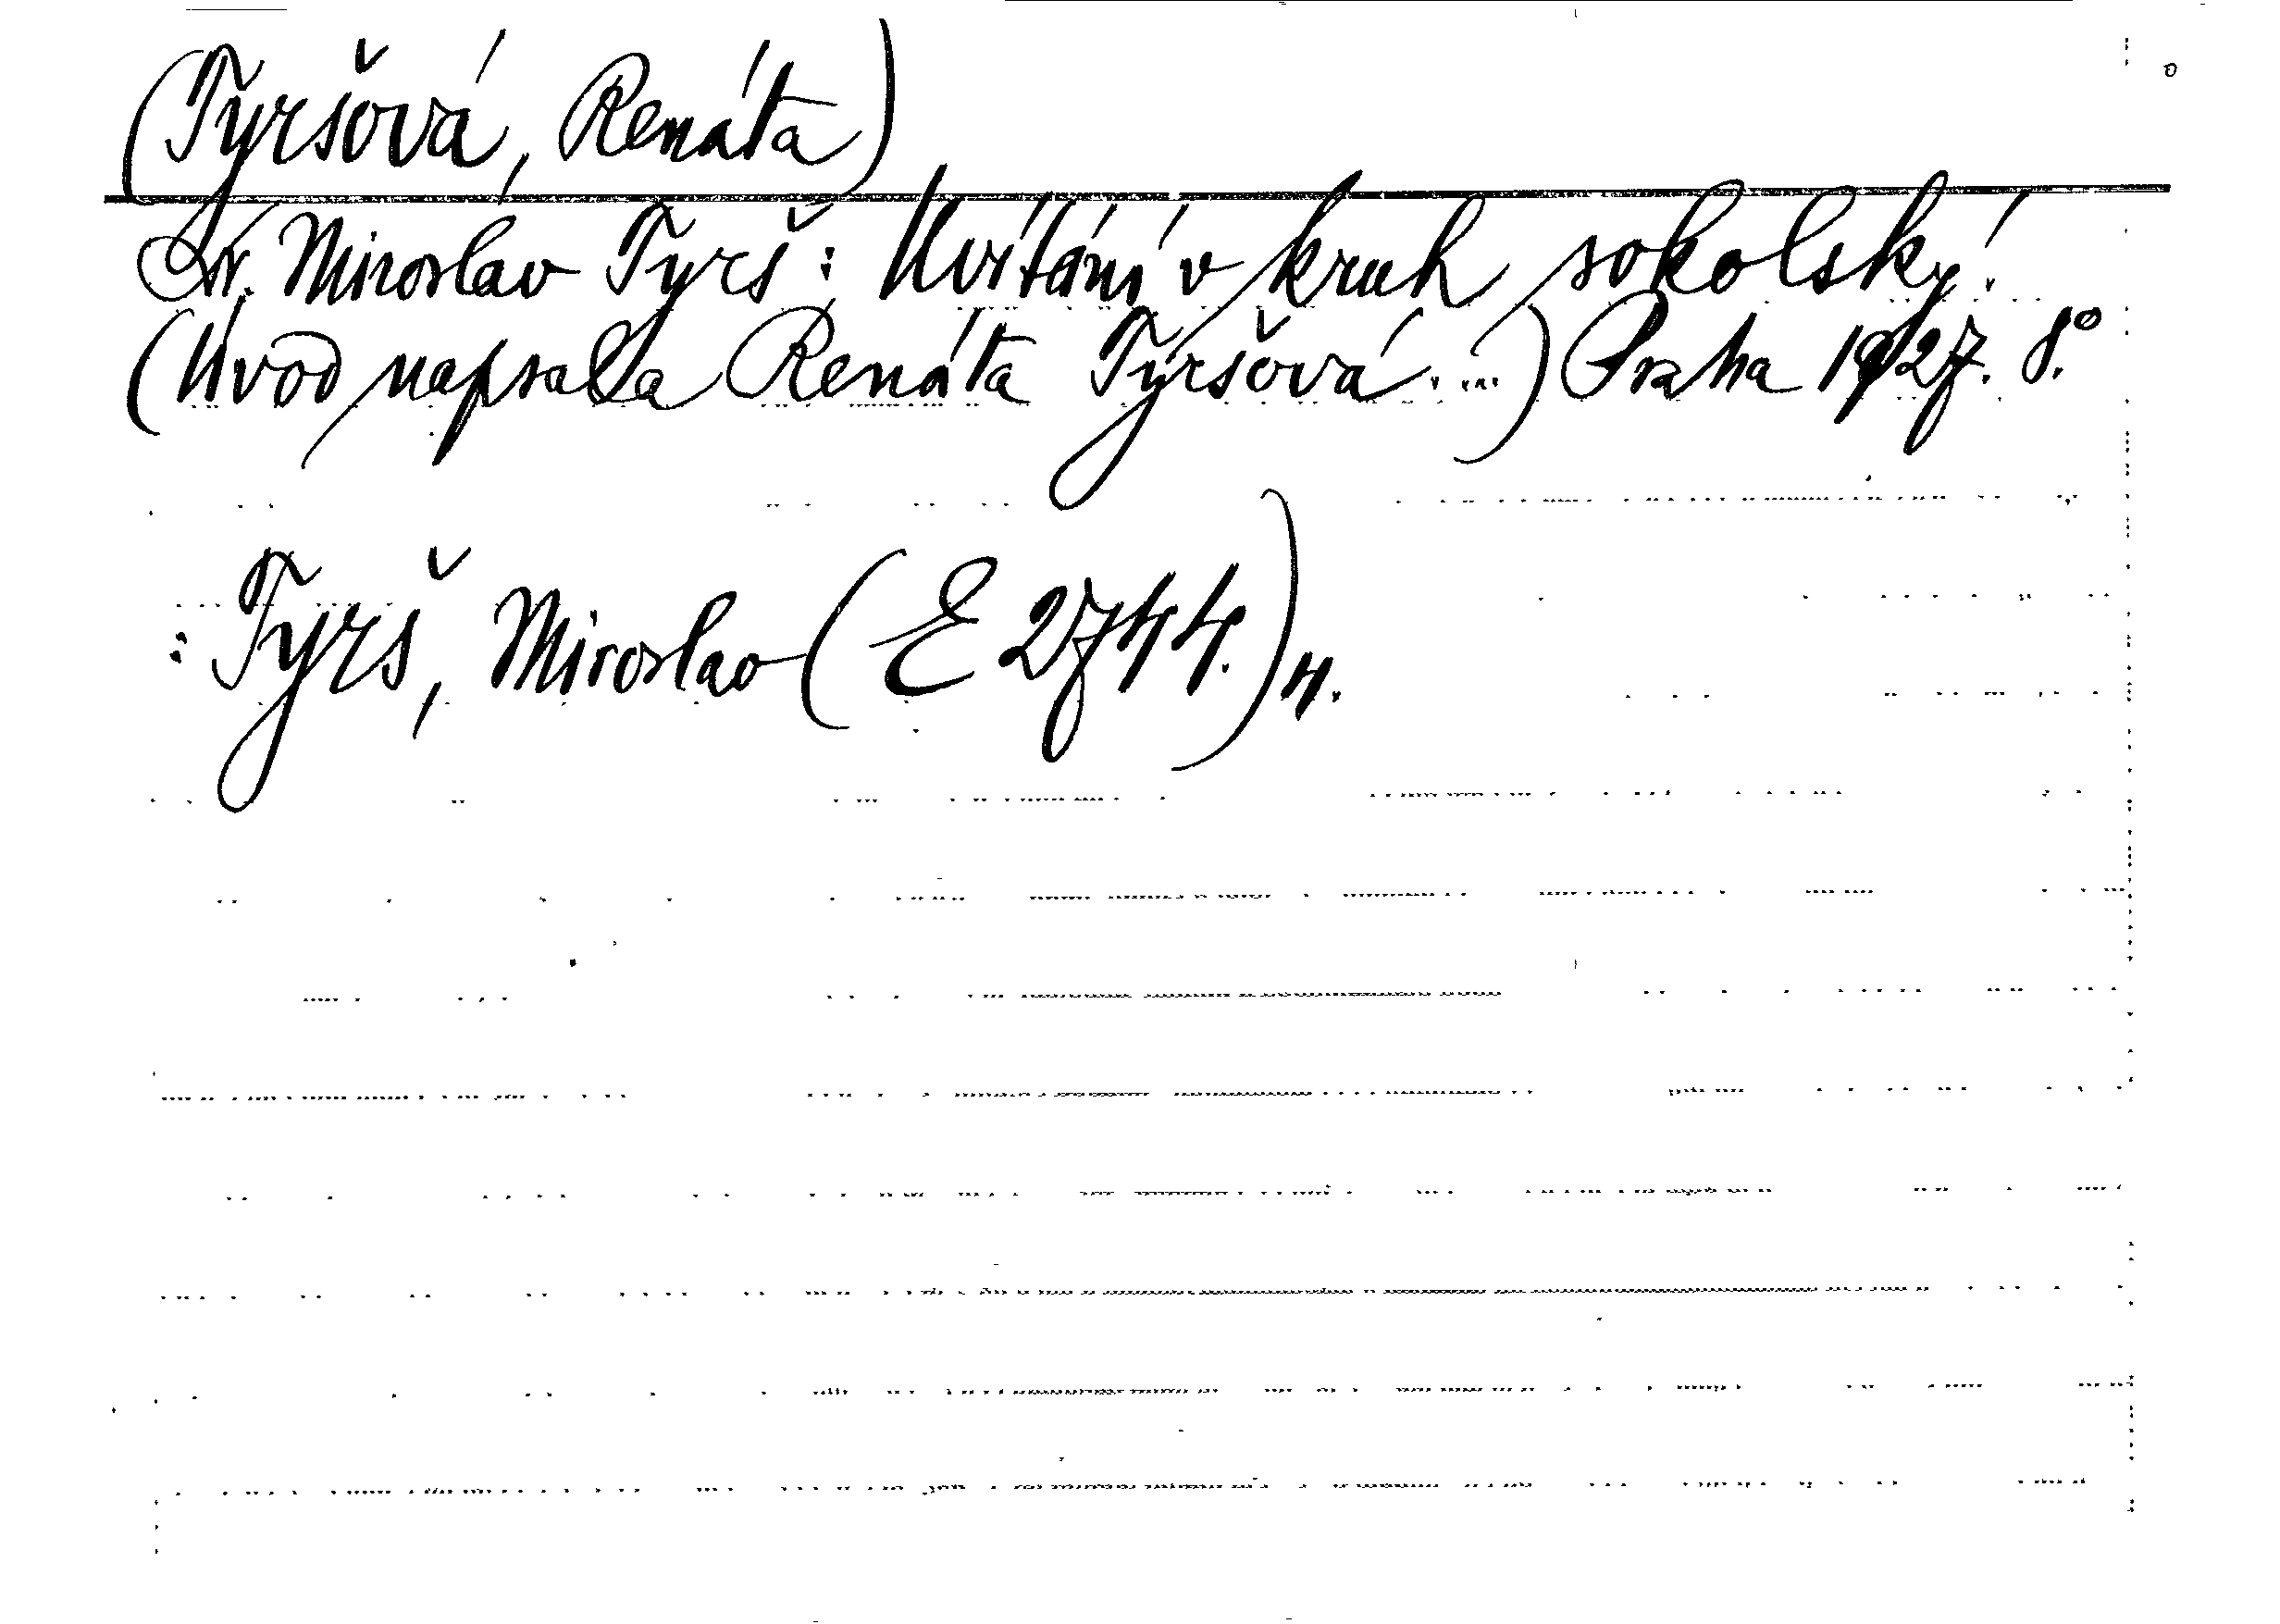 (Tyršová, Renáta)
Dr. Miroslav Tyrš: Uvítání v kruh sokolský.
(Úvod napsala Renáta Tyršová....) Praha 1927. 8.°
: Tyrš, Miroslav (E 2744.) 4.